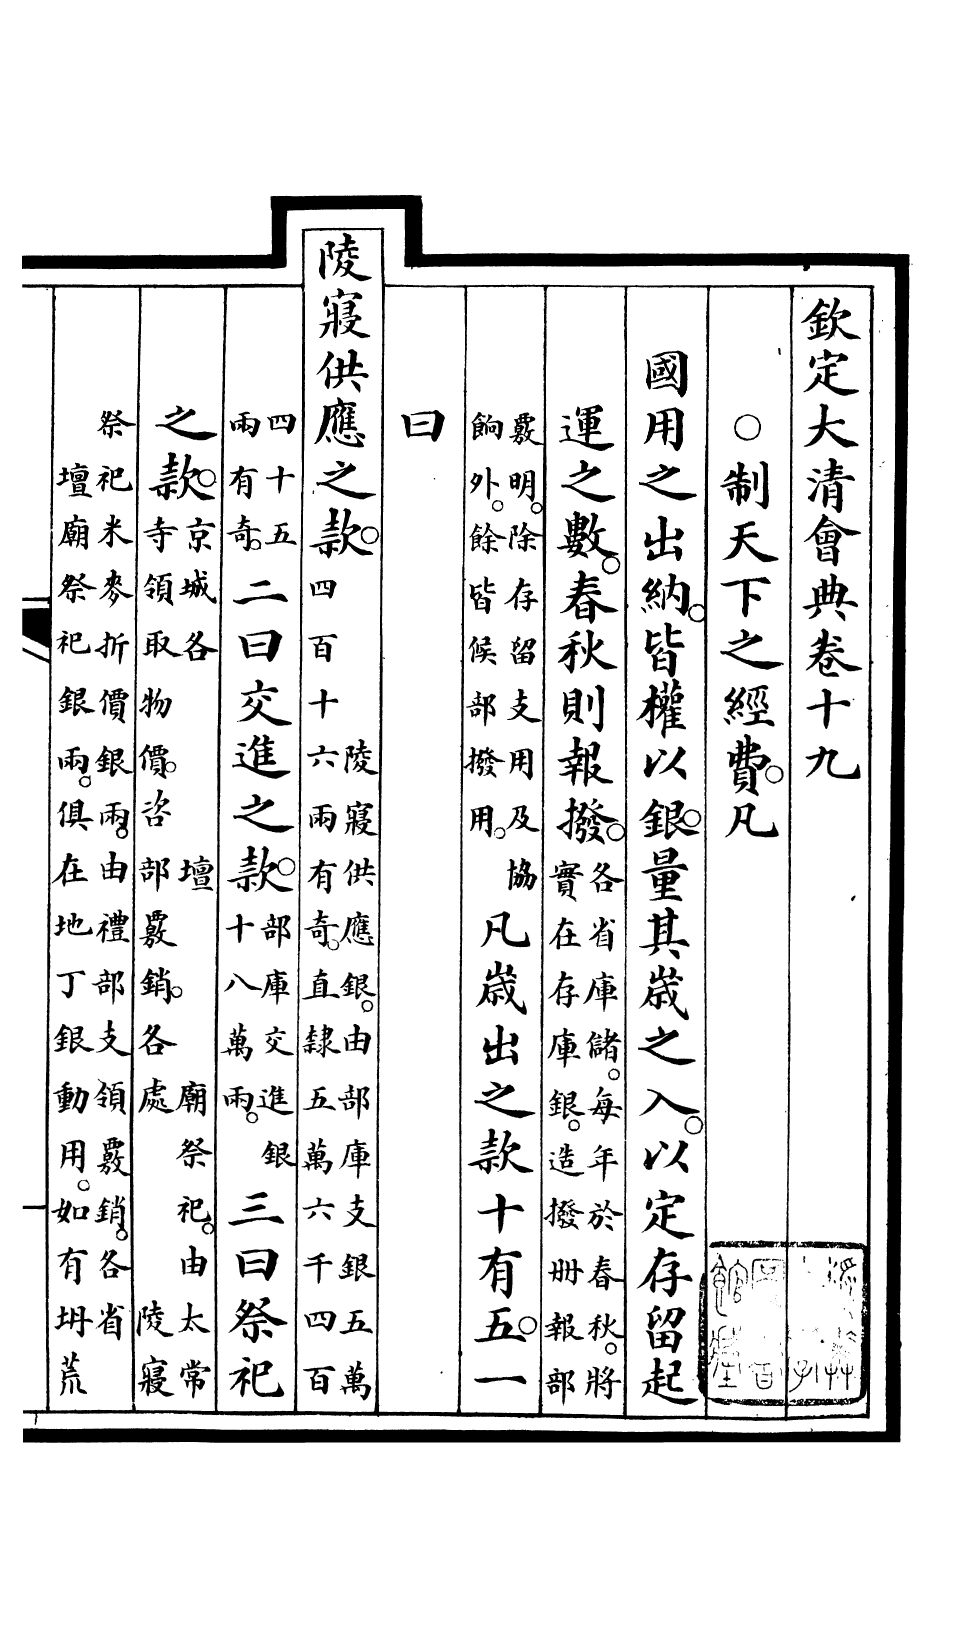 欽定大清會典卷十九
○制天下之經費。凡
國用之出納。皆權以銀。量其嵗之入。以定存留起
運之數。春秋則報撥。各省庫儲。每年於春秋。將實在存庫銀。造撥冊報部
覈明。除存留支用及協餉外。餘皆候部撥用。凡嵗出之款十有五。一
曰
陵寢供應之款。陵寢供應銀。由部庫支銀五萬四百十六兩有奇。直隸五萬六千四百
四十五兩有奇。二曰交進之款。部庫交進銀十八萬兩。三曰祭祀
之款。京城各壇廟祭祀。由太常寺領取物價。咨部覈銷。各處陵寢
祭祀米麥折價銀兩。由禮部支領覈銷。各省壇廟祭祀銀兩。俱在地丁銀動用。如有坍荒